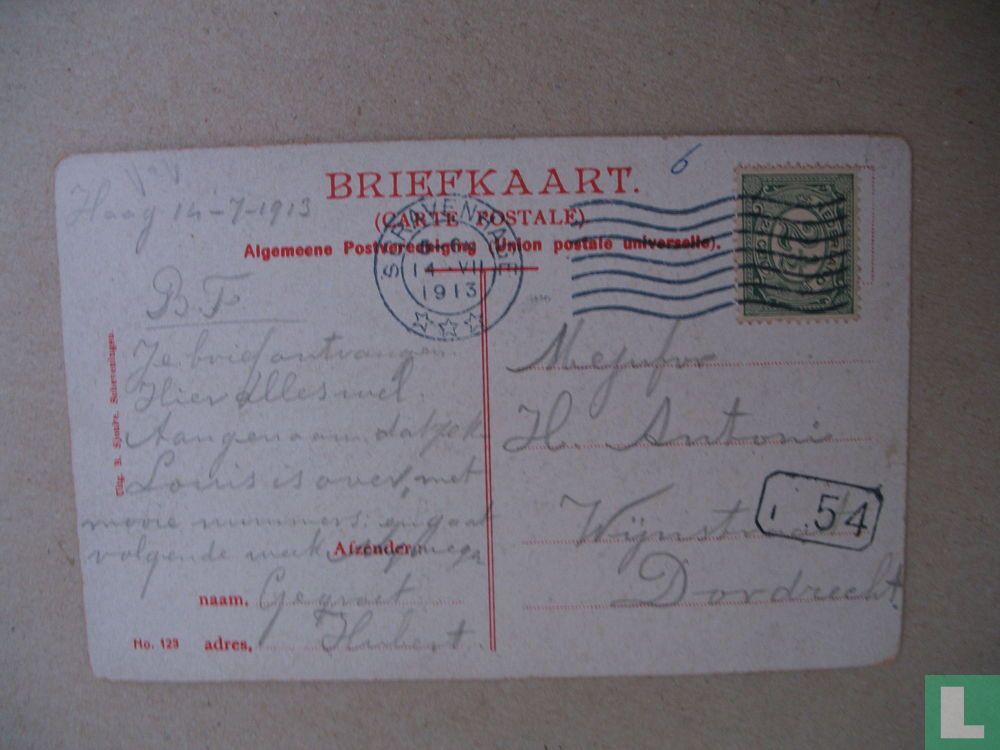 BRIEFKAART.
(CARTE POSTALE)
Algemeene Postvereeniging (Union postale universelle).
6
Haag 14-7-1913
S GRAVENHAGE
14 VII
1913
B.F
Je brief ontvangen.
Hier alles wel.
Aangenaam dat ook
Louis is over, met
mooie nummers. en gaat
volgende week
Afzender:
naam. Gegroet
adres, Hubert
No. 123
Scheveningen.
Mejufvr
H. Antoni
Wijnstraat
Dordrecht.
54
L